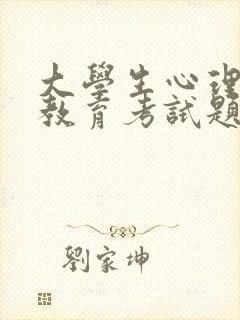 大學生心理
教育考試題
劉家坤